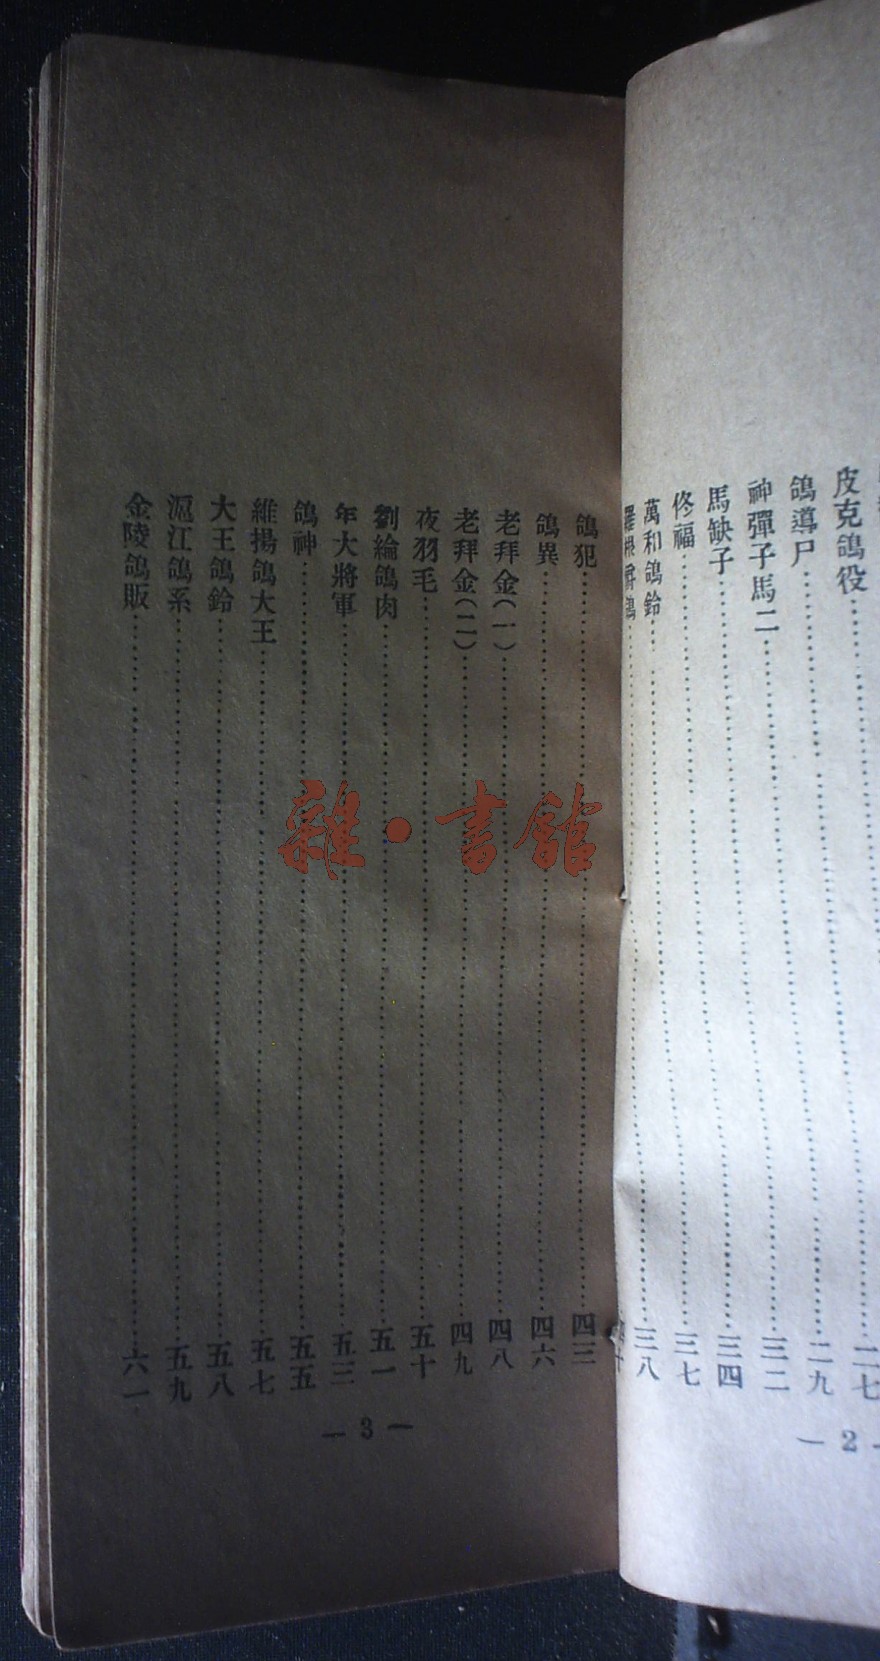 皮克鴿役……二七
鴿導尸……二九
神彈子馬二……三二
馬缺子……三四
佟福……三七
萬和鴿鈴……三八
— 2 —
鴿犯……四三
鴿異……四六
老拜金(一)……四八
老拜金(二)……四九
夜羽毛……五十
劉綸鴿肉……五一
年大將軍……五三
鴿神……五五
維揚鴿大王……五七
大王鴿鈴……五八
滬江鴿系……五九
金陵鴿販……六一
— 3 —
雜·書館